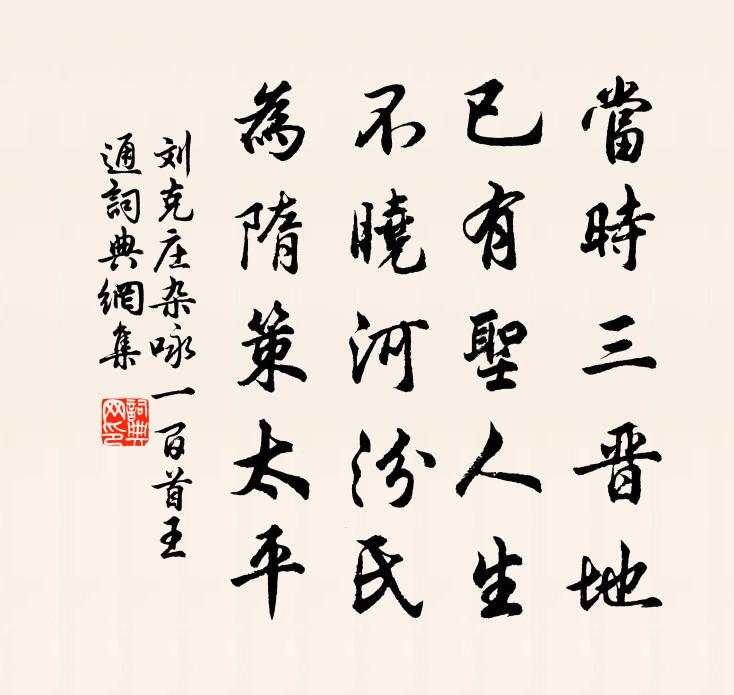 當時三晋地
已有聖人生
不曉河汾氏
為隋策太平
刘克庄杂咏一百首王
通詞典網集
詞典
网印